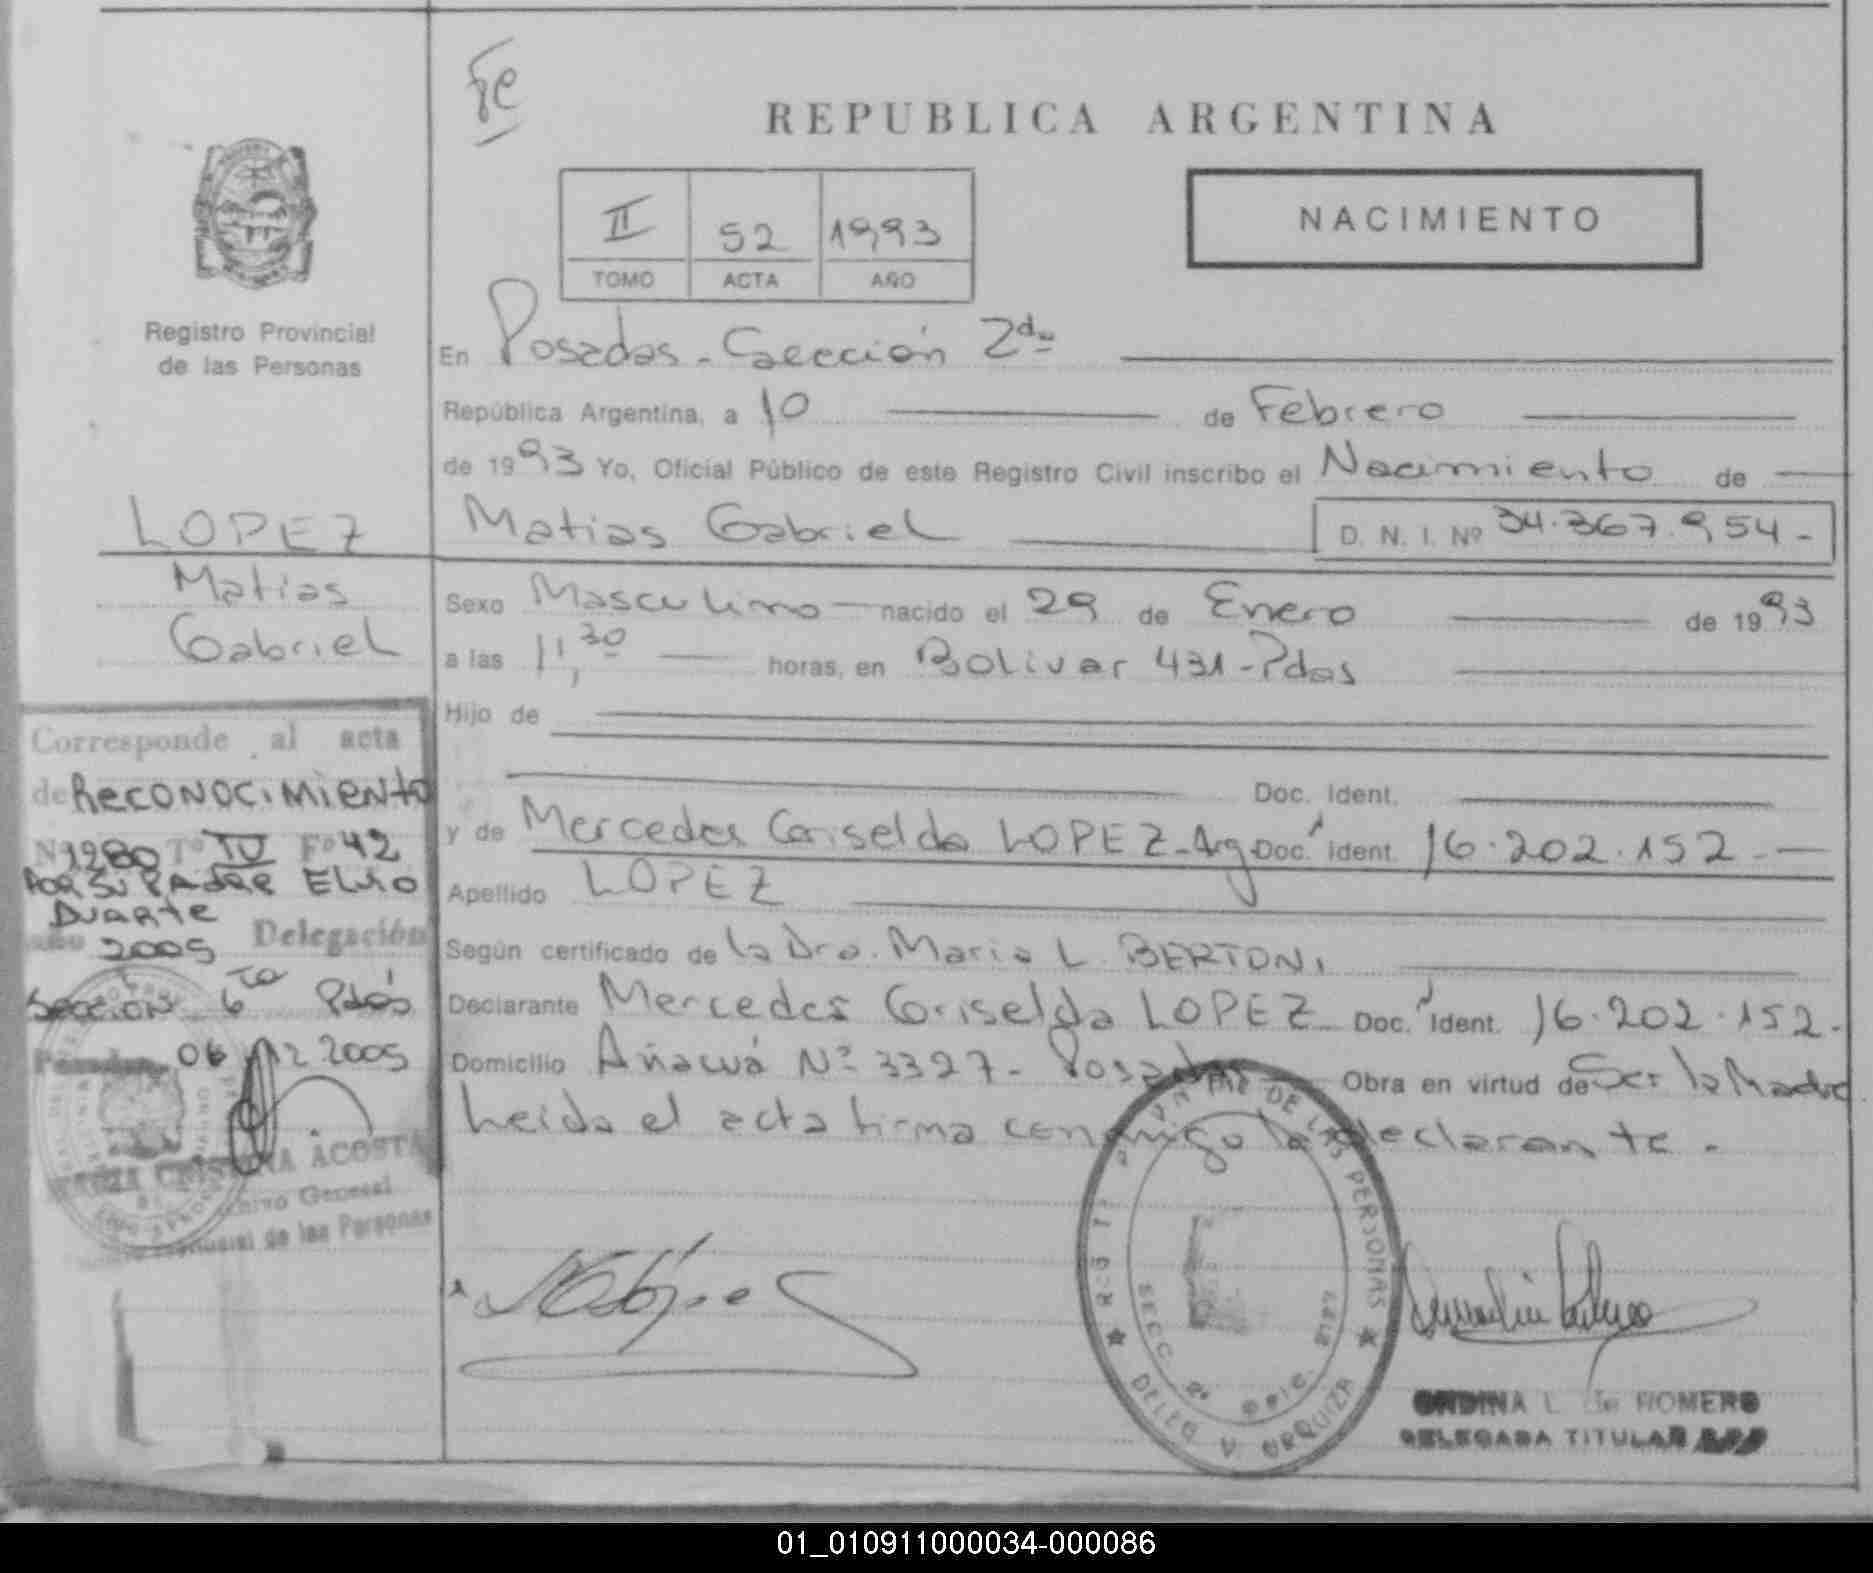 REPUBLICA ARGENTINA
NACIMIENTO
II 52 1993
TOMO ACTA AÑO
Registro Provincial
de las Personas
LOPEZ
Matias
Gabriel
En Posadas - Sección 2da
República Argentina, a 10 de Febrero
de 1993 Yo, Oficial Público de este Registro Civil inscribo el Nacimiento de
Matias Gabriel D. N. I. Nº 34.367.954-
Sexo Masculino nacido el 29 de Enero de 1993
a las 11,30 horas, en Bolivar 431 - Pdas
Hijo de
Doc. Ident.
y de Mercedes Griselda LOPEZ - Arg Doc. Ident. 16.202.152 -
Apellido LOPEZ
Según certificado de la Dra. Maria L. BERTONI
Declarante Mercedes Griselda LOPEZ Doc. Ident. 16.202.152.
Domicilio Añacuá Nº 3327 - Posadas Obra en virtud de Ser la Madre
Leida el acta firma conmigo la declarante.
Corresponde al acta
de Reconocimiento
Nº 1280 Tº IV Fº 42
POR SU PADRE ELVIO
Duarte
año 2005 Delegación
Sección 6ta Pdas
Posadas, 06 12 2005
MARIA CRISTINA ACOSTA
Archivo General
de las Personas
DE LAS PERSONAS
SECC. 2ª
DELEG. V. URQUIZA
ONDINA L. de ROMERO
DELEGADA TITULAR
01_010911000034-000086